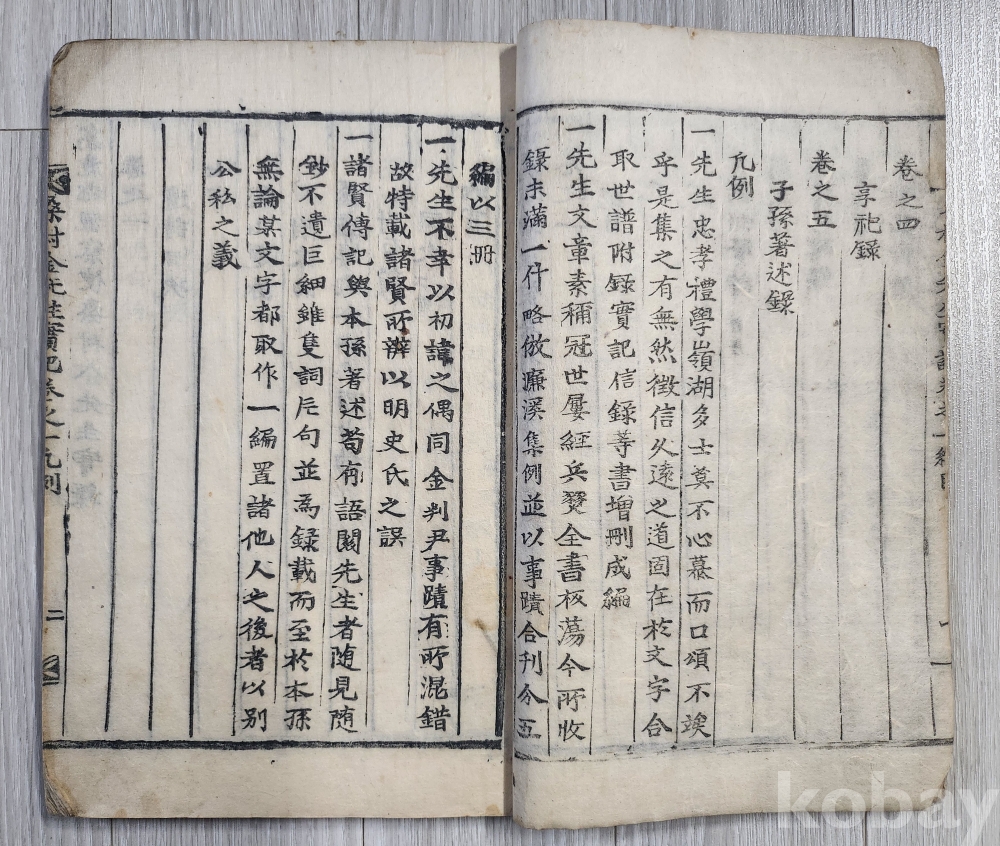 卷之四
享祀錄
卷之五
子孫著述錄
凡例
一先生忠孝禮學嶺湖多士莫不心慕而口頌不竢
乎是集之有無然徵信久遠之道固在於文字合
取世譜附錄實記信錄等書增刪成編
一先生文章素稱冠世屢經兵燹全書板蕩今所收
錄未滿一什略倣濂溪集例並以事蹟合刊分五
編以三册
一先生不幸以初諱之偶同金判尹事蹟有所混錯
故特載諸賢所辨以明史氏之誤
一諸賢傳記與本孫著述苟有語關先生者隨見隨
鈔不遺巨細雖隻詞片句並爲錄載而至於本孫
無論某文字都取作一編置諸他人之後者以別
公私之義
桑村金先生實記卷之一凡例
二
kobay